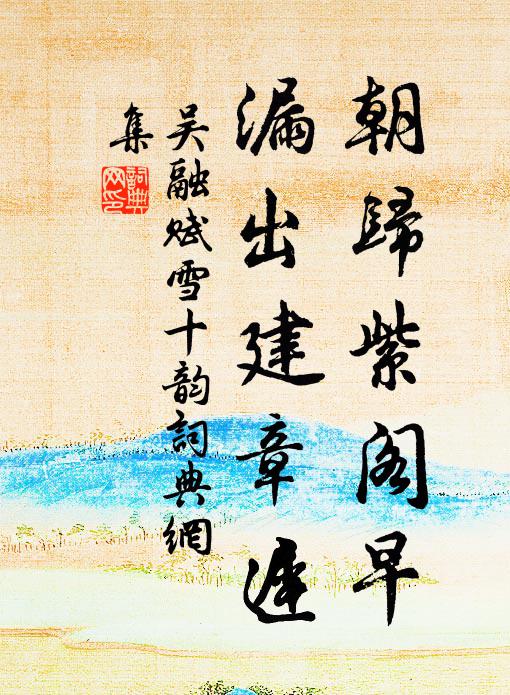 朝歸紫阁早
漏出建章遅
吴融赋雪十韵詞典網
集
詞典
网印